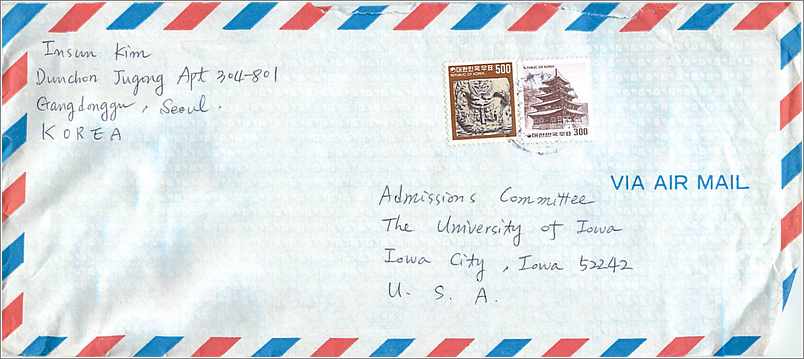 Insun Kim
Dunchon Jugong Apt 304-801
Gangdonggu, Seoul.
KOREA
대한민국우표 500
REPUBLIC OF KOREA
REPUBLIC OF KOREA
대한민국우표
300
VIA AIR MAIL
Admissions Committee
The University of Iowa
Iowa City, Iowa 52242
U. S. A.